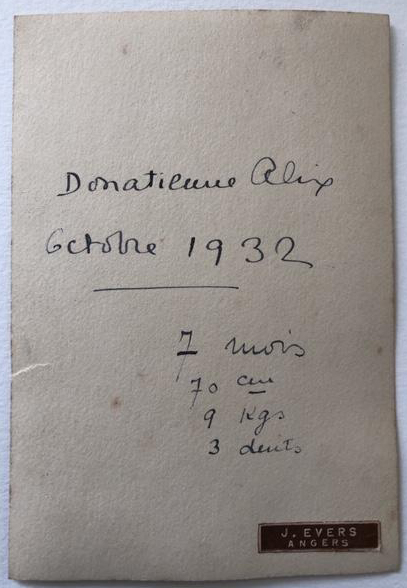 Donatienne Alix
Octobre 1932
7 mois
70 cm
9 Kgs
3 dents
J. EVERS
ANGERS